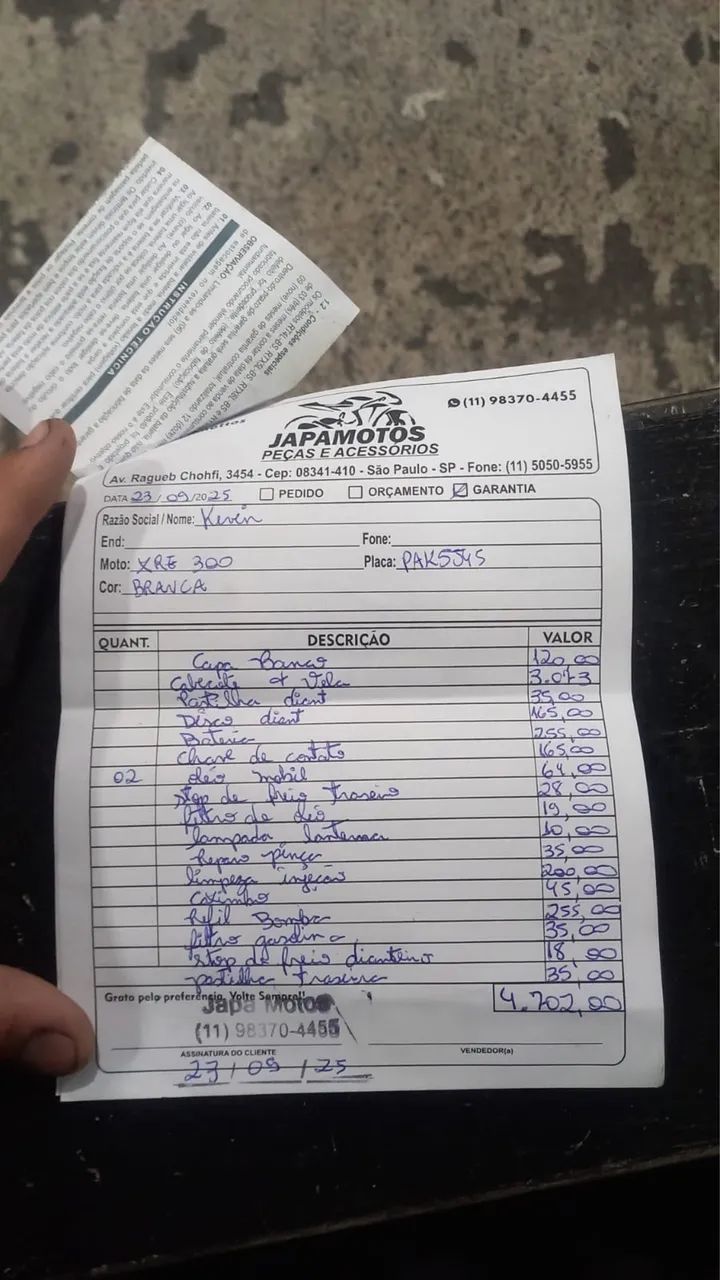 12 - Condições especiais
OBSERVAÇÃO
INSTRUÇÃO TÉCNICA
JAPAMOTOS
PEÇAS E ACESSÓRIOS
(11) 98370-4455
Av. Ragueb Chohfi, 3454 - Cep: 08341-410 - São Paulo - SP - Fone: (11) 5050-5955
DATA 23/09/2025 PEDIDO ORÇAMENTO GARANTIA
Razão Social / Nome: Kevin
End: Fone:
Moto: XRE 300 Placa: PAK5J45
Cor: BRANCA
QUANT. DESCRIÇÃO VALOR
Capa Banco 120,00
Cabeçote + Vela 3.073
Partilha diant 35,00
Disco diant 165,00
Bateria 255,00
Chave de contato 165,00
02 óleo mobil 64,00
stop de freio traseiro 28,00
filtro de óleo 19,00
lampada lanterna 10,00
Reparo pinça 35,00
limpeza injeção 200,00
Coximbo 45,00
Refil Bomba 255,00
filtro gasolina 35,00
stop de freio dianteiro 18,00
patilha traseira 35,00
4.702,00
Grato pelo preferência, Volte Sempre!!
Japa Motos
(11) 98370-4455
ASSINATURA DO CLIENTE VENDEDOR(a)
23/09/25